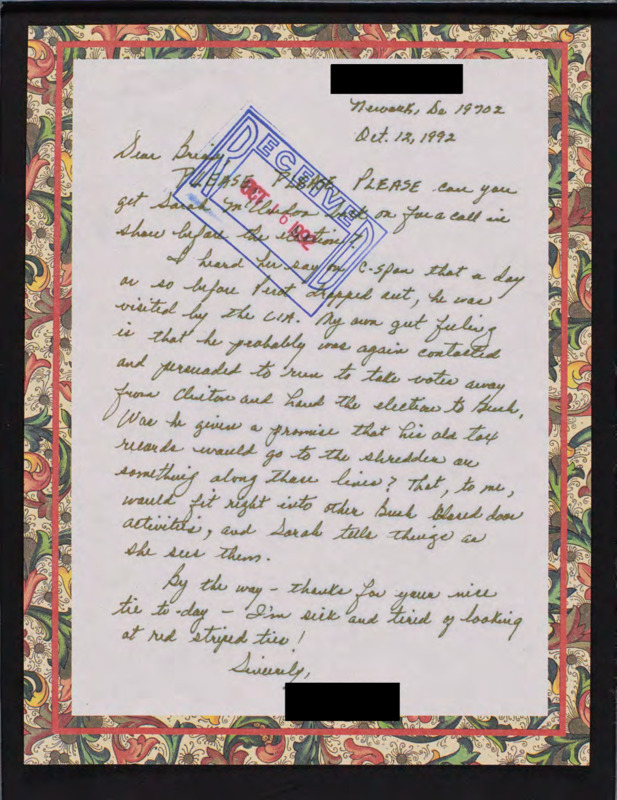 Newark, De 19702
Oct. 12, 1992
Dear Brian,
PLEASE, PLEASE, PLEASE can you
get Sarah on for a call in
show before the election?
RECEIVED
OCT 16 1992
I heard her say on C-Span that a day
or so before Perot dropped out, he was
visited by the CIA. My own gut feeling
is that he probably was again contacted
and persuaded to run to take votes away
from Clinton and hand the election to Bush.
Was he given a promise that his old tax
records would go to the shredder or
something along those lines? That, to me,
would fit right into other Bush closed door
activities, and Sarah tells things as
she sees them.
By the way - thanks for your nice
tie to-day - I'm sick and tired of looking
at red striped ties!
Sincerely,